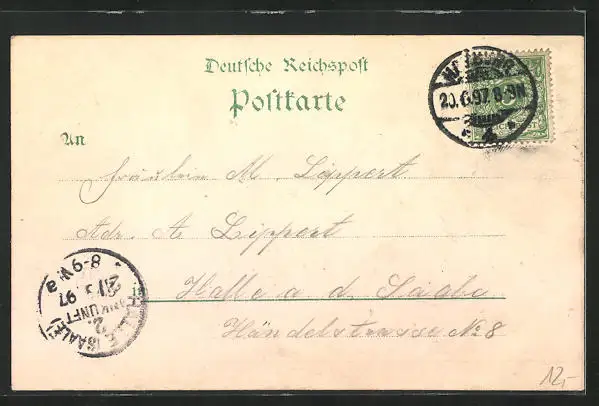 Deutsche Reichspost
Postkarte
20.6.97. 8-9N
An
Fräulein M. Lippert
Adr. A Lippert
in
Halle a d Saale
Händelstrasse No 8
8-9V.
97
ANKUNFT
2.
HALLE (SAALE)
12,-